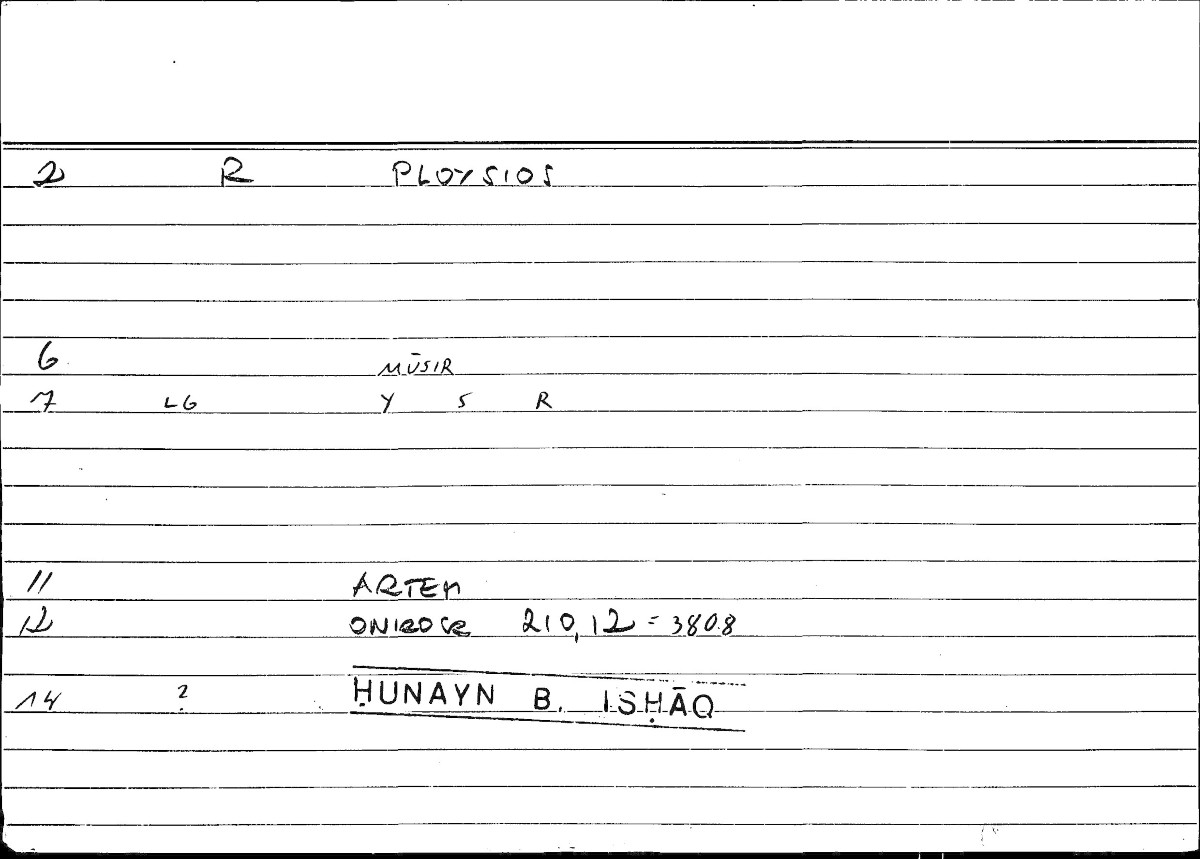 2 R PLOYSIOS
6 MŪSIR
7 LG Y S R
11 ARTEM
12 ONIROCR 210,12 = 380.8
14 ? ḤUNAYN B. ISḤĀQ